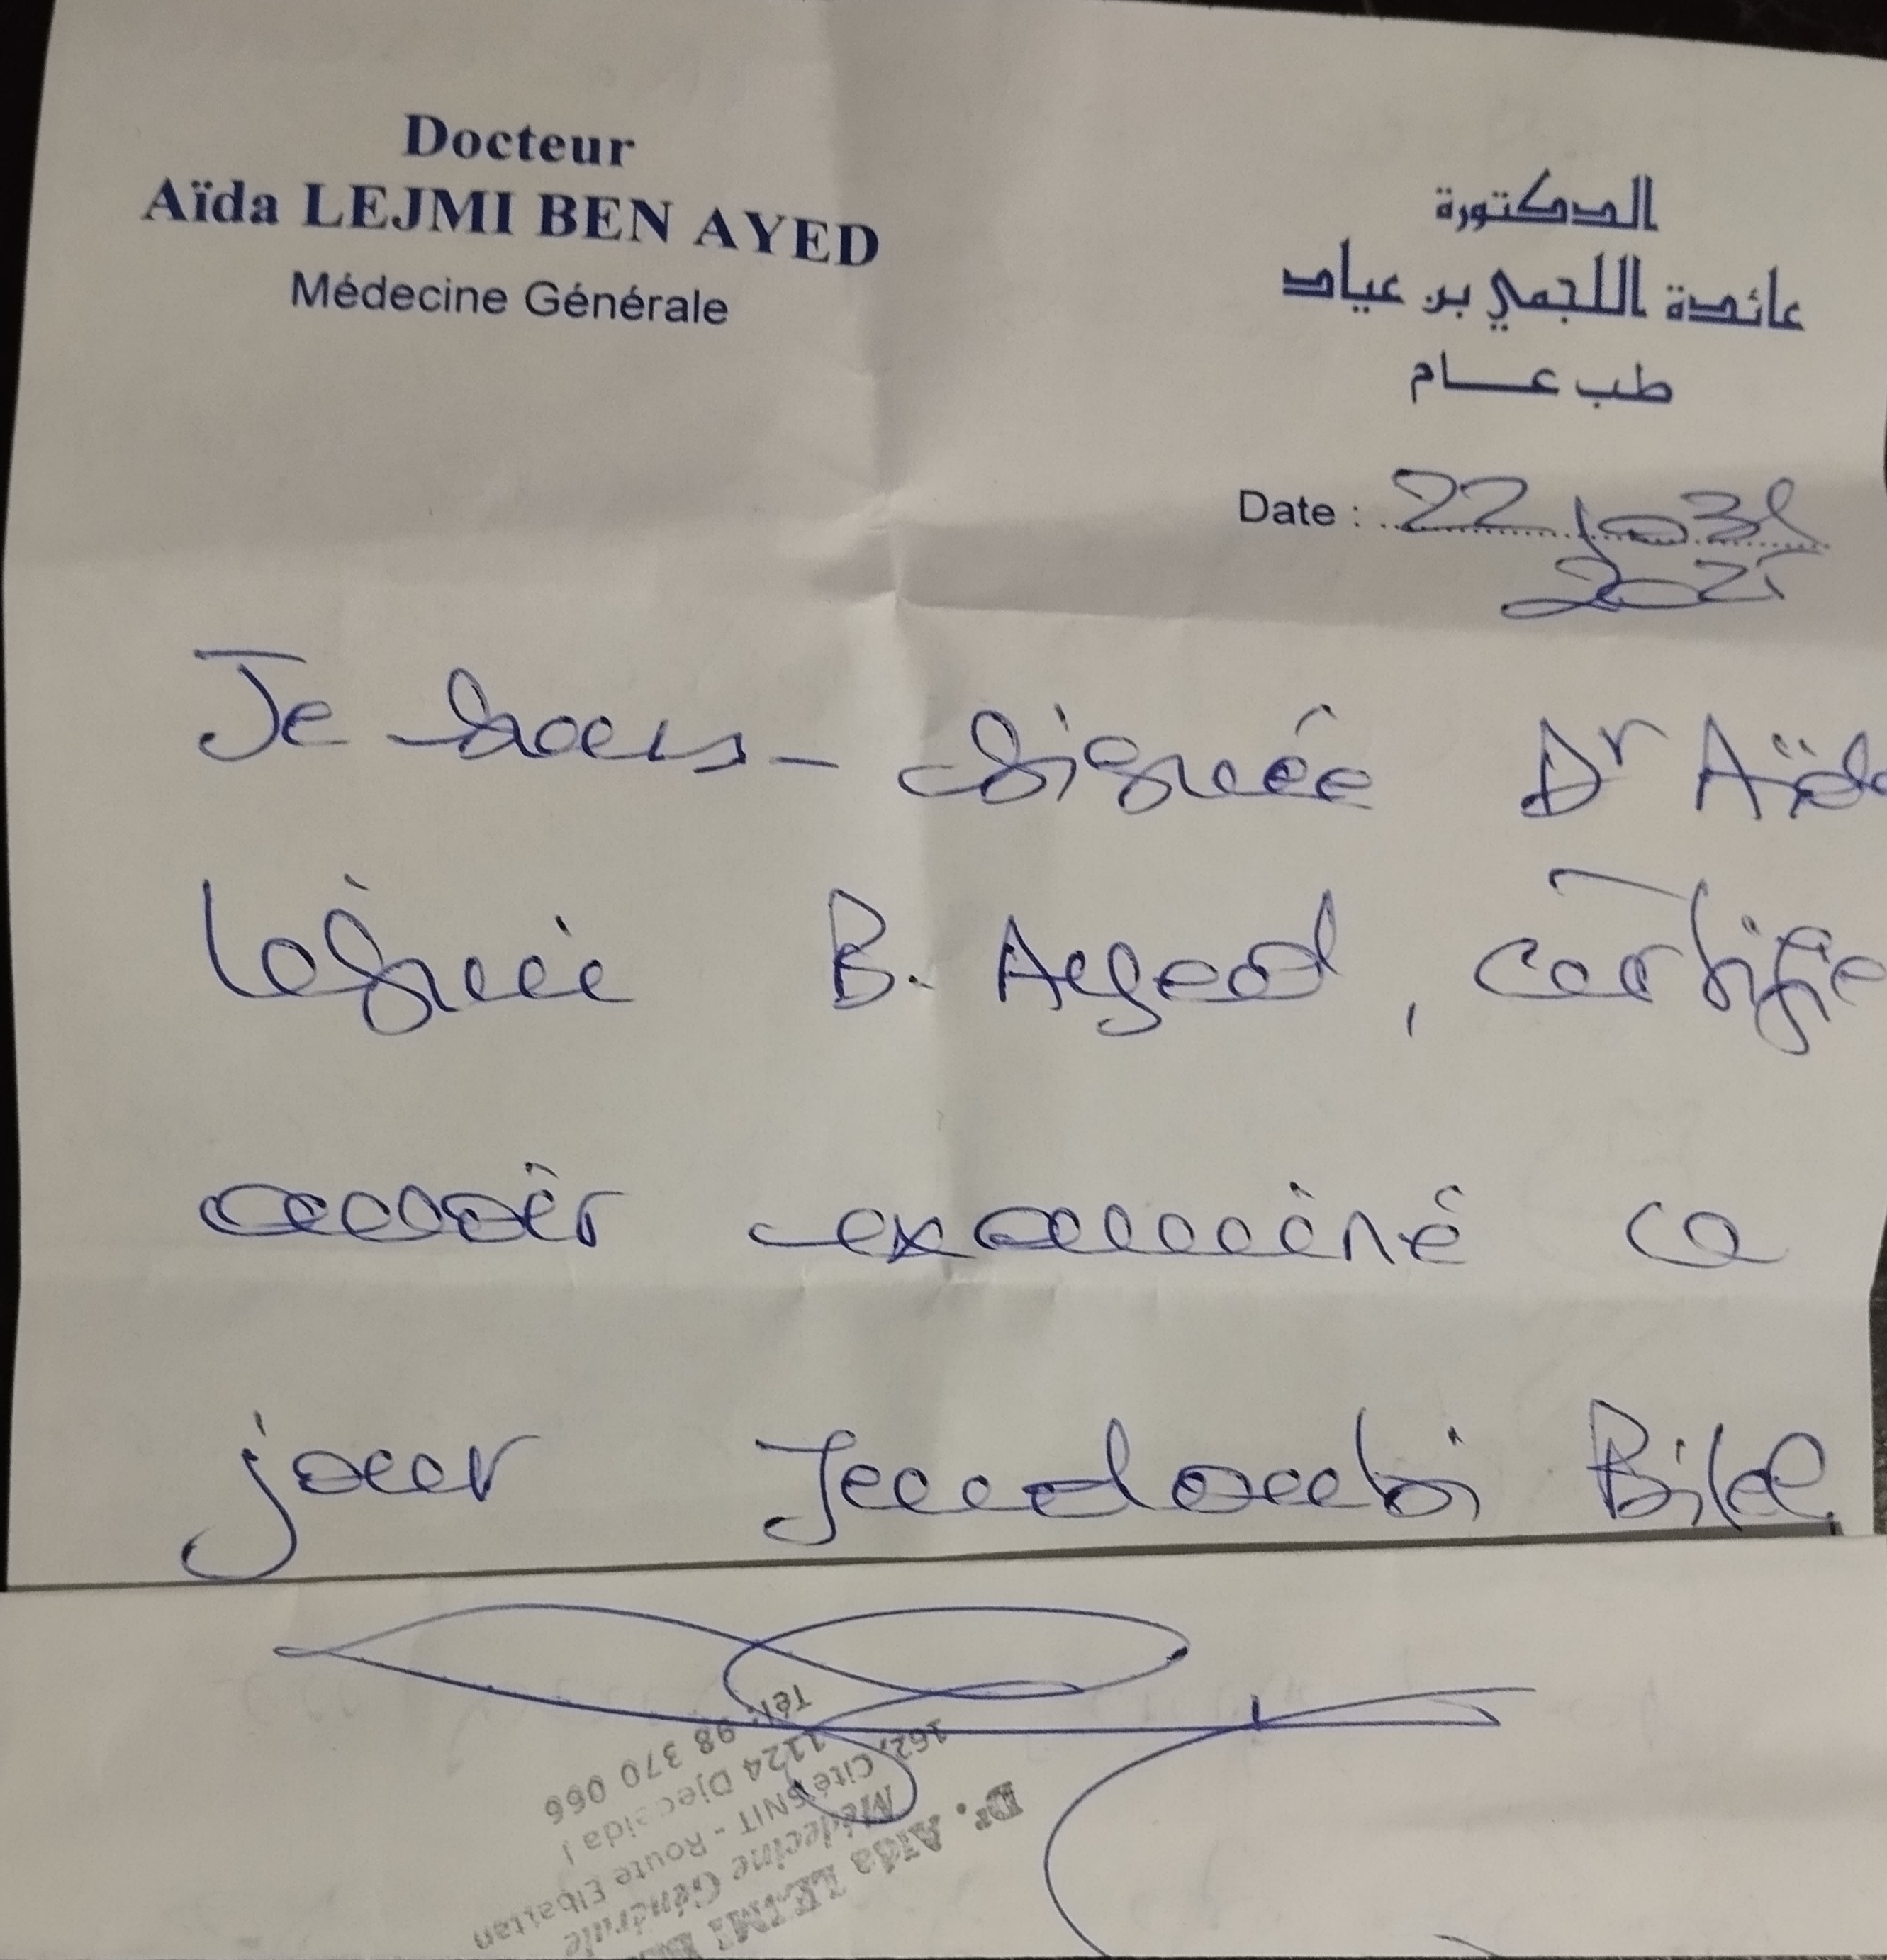 Docteur
Aïda LEJMI BEN AYED
Médecine Générale
الدكتورة
عائدة اللجمي بن عياد
طب عام
Date : 22
Je sous-signée Dr Aïda
B. Ayed, certifie
avoir examiné ce
jour Bilel
Dr. Aïda LEJMI
Médecine Générale
162, Cité SNIT - Route Elbattan
1124 Djedeida
Tél: 98 370 066